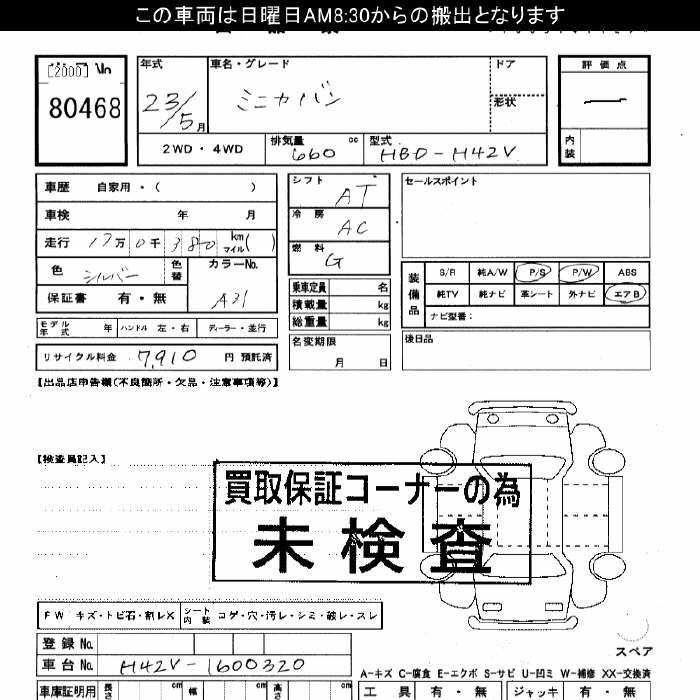 この車両は日曜日AM8:30からの搬出となります
[2000]
80468
年式
車名・グレード
ドア
評価点
23/5月
ミニカバン
形状
ー
2WD・4WD
排気量 660 cc
型式 HBD-H42V
内装
車歴 自家用・( )
シフト AT
セールスポイント
車検 年 月
冷房 AC
走行 17万0千380 km マイル( )
燃料 G
色 シルバー
色替
カラーNo. A31
装備品
S/R 純A/W P/S P/W ABS
純TV 純ナビ 革シート 外ナビ エアB
ナビ型番:
保証書 有・無
乗車定員 名
積載量 kg
総重量 kg
モデル年式 年 ハンドル 左・右 ディーラー・並行
名変期限 月 日
後日品
リサイクル料金 7,910 円 預託済
【出品店申告欄(不良箇所・欠品・注意事項等)】
【検査員記入】
買取保証コーナーの為
未検査
FW キズ・トビ石・割レX
シート内装 コゲ・穴・汚レ・シミ・破レ・スレ
登録No.
スペア
車台No. H42V-1600320
A-キズ C-腐食 E-エクボ S-サビ U-凹ミ W-補修 XX-交換済
車庫証明用 長さ cm 幅 cm 高さ cm
工具 有・無 ジャッキ 有・無